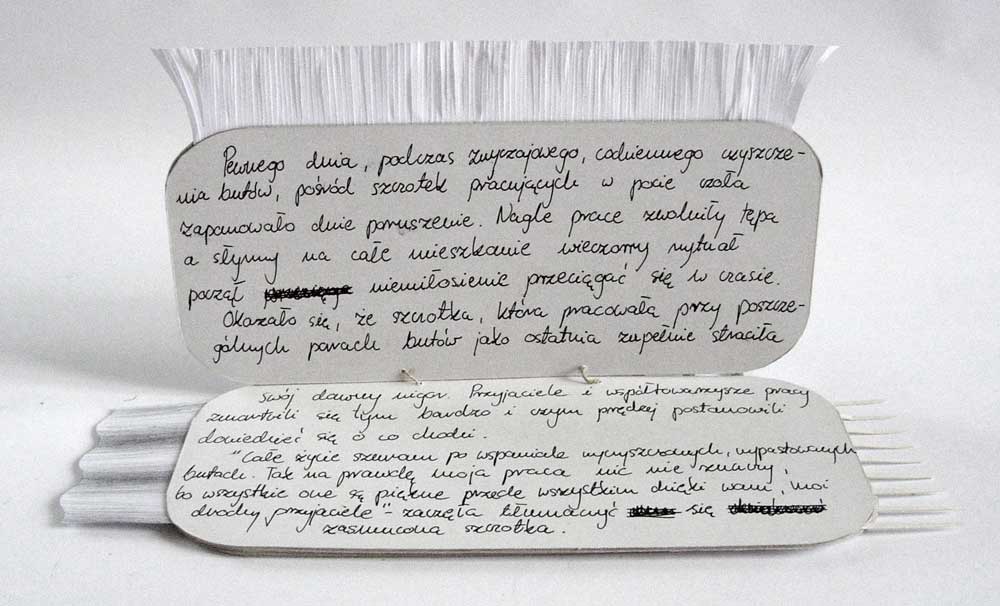 Pewnego dnia, podczas zwyczajowego, codziennego czyszcze-
nia butów, pośród szczotek pracujących w pocie czoła
zapanowało dnie poruszenie. Nagle prace zwolniły tępa
a słynny na całe mieszkanie wieczorny rytuał
począł niemiłosiernie przeciągać się w czasie.
Okazało się, że szczotka, która pracowała przy poszcze-
gólnych parach butów jako ostatnia zupełnie straciła
swój dawny wigor. Przyjaciele i współtowarzysze pracy
zmartwili się tym bardzo i czym prędzej postanowili
dowiedzieć się o co chodzi.
"Całe życie szuram po wspaniale wyczyszczonych, wypastowanych
butach. Tak na prawdę moja praca nic nie znaczy,
bo wszystkie one są piękne przede wszystkim dzięki wam, moi
drodzy przyjaciele" - zaczęła tłumaczyć się
zasmucona szczotka.